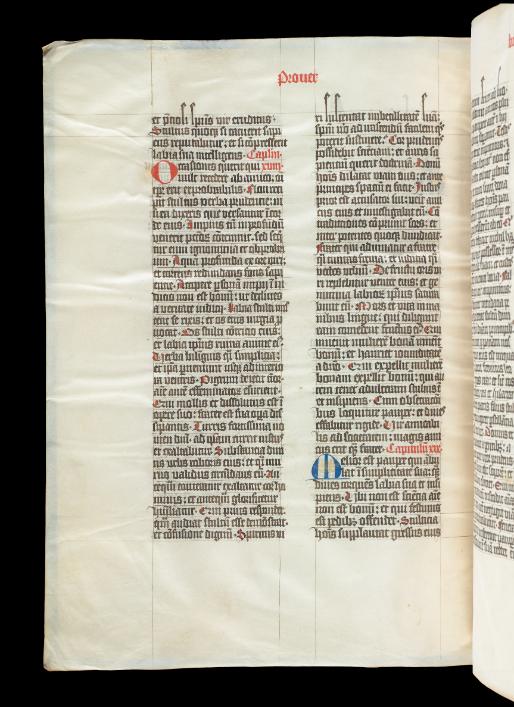 Prouer
et p̄ciosi spūs vir eruditus·
Stultus quoq; si tacuerit sapi
ens reputabitur: et si cōpresserit
labia sua intelligens· Caplm·
Occasiones querit qui xviij·
vult recedere ab amico: oī
tp̄e erit exprobrabilis· Non reci
pit stultus verba prudencie: ni
si ea dixeris que versantur ī cor
de eius· Impius cū in profundū
venerit pctōꝝ cōtemnit· sed seq̄
tur eum ignominia et obprobri
um· Aqua profunda ex ore viri:
et torrens redundans fons sapi
encie· Accipere psonā impij in
iudicio non est bonū: ut declines
a veritate iudicij· Labia stulti mis
cent se rixis: et os eius iurgia p
uocat· Os stulti cōtricio eius:
et labia ipsius ruina anime ei⁹·
Verba bilinguis q̄si simplicia:
et ipa pueniunt usq; ad interio
ra ventris· Pigrum deicit timor
aīe aūt effeminatoꝝ esurient·
Qui mollis et dissolutus est ī
opere suo: frater est sua opa dis
sipantis· Turris fortissima no
men dnī· ad ipam currit iustus
et exaltabitur· Substancia diui
tis vrbs roboris eius: et q̄si mu
rus validus circūdans eū· An
teq̄m conteratur exaltatur cor ho
minis: et anteq̄m glorificetur
humiliatur· Qui prius respondet
q̄m audiat stultū se esse demōstrat·
et cōfusione dignū· Spiritus vi
ri sustentat imbecillitatē suā:
spm̄ vō ad irascendū facilem q̄s
poterit sustinere· Cor prudens
possidebit sciēciam: et auris sa
pientū querit doctrinā· Donū
hoīs dilatat viam eius: et ante
principes spaciū ei facit· Iustus
prior est accusator sui: venit ami
cus eius et inuestigabit eū· Cō
tradictiones cōprimit sors: et
inter potentes quoq; diiudicat·
Frater qui adiuuatur a fratre
q̄si ciuitas firma: et iudicia q̄si
vectes vrbiū· De fructu oris viri
replebitur venter eius: et ge
nimina labioꝝ ipsius satura
bunt eū· Mors et vita in ma
nibus lingue: qui diligunt
eam comedent fructus ei⁹· Qui
inuenit mulierē bonā inuenit
bonū: et hauriet iocunditatē
a dnō· Qui expellit mulierē
bonam expellit bonū: qui au
tem tenet adulteram stultus est
et insipiens· Cum obsecracioni
bus loquitur pauper: et diues
effabitur rigide· Vir amicabi
lis ad societatem: magis ami
cus erit q̄m frater· Capitulū xix·
Melior est pauper qui ābu
lat ī simplicitate sua: q̄m
diues torquēs labia sua et insi
piens· Vbi non est sciēcia aīe
non est bonū: et qui festinus
est pedib; offendet· Stulticia
hoīs supplantat gressus eius